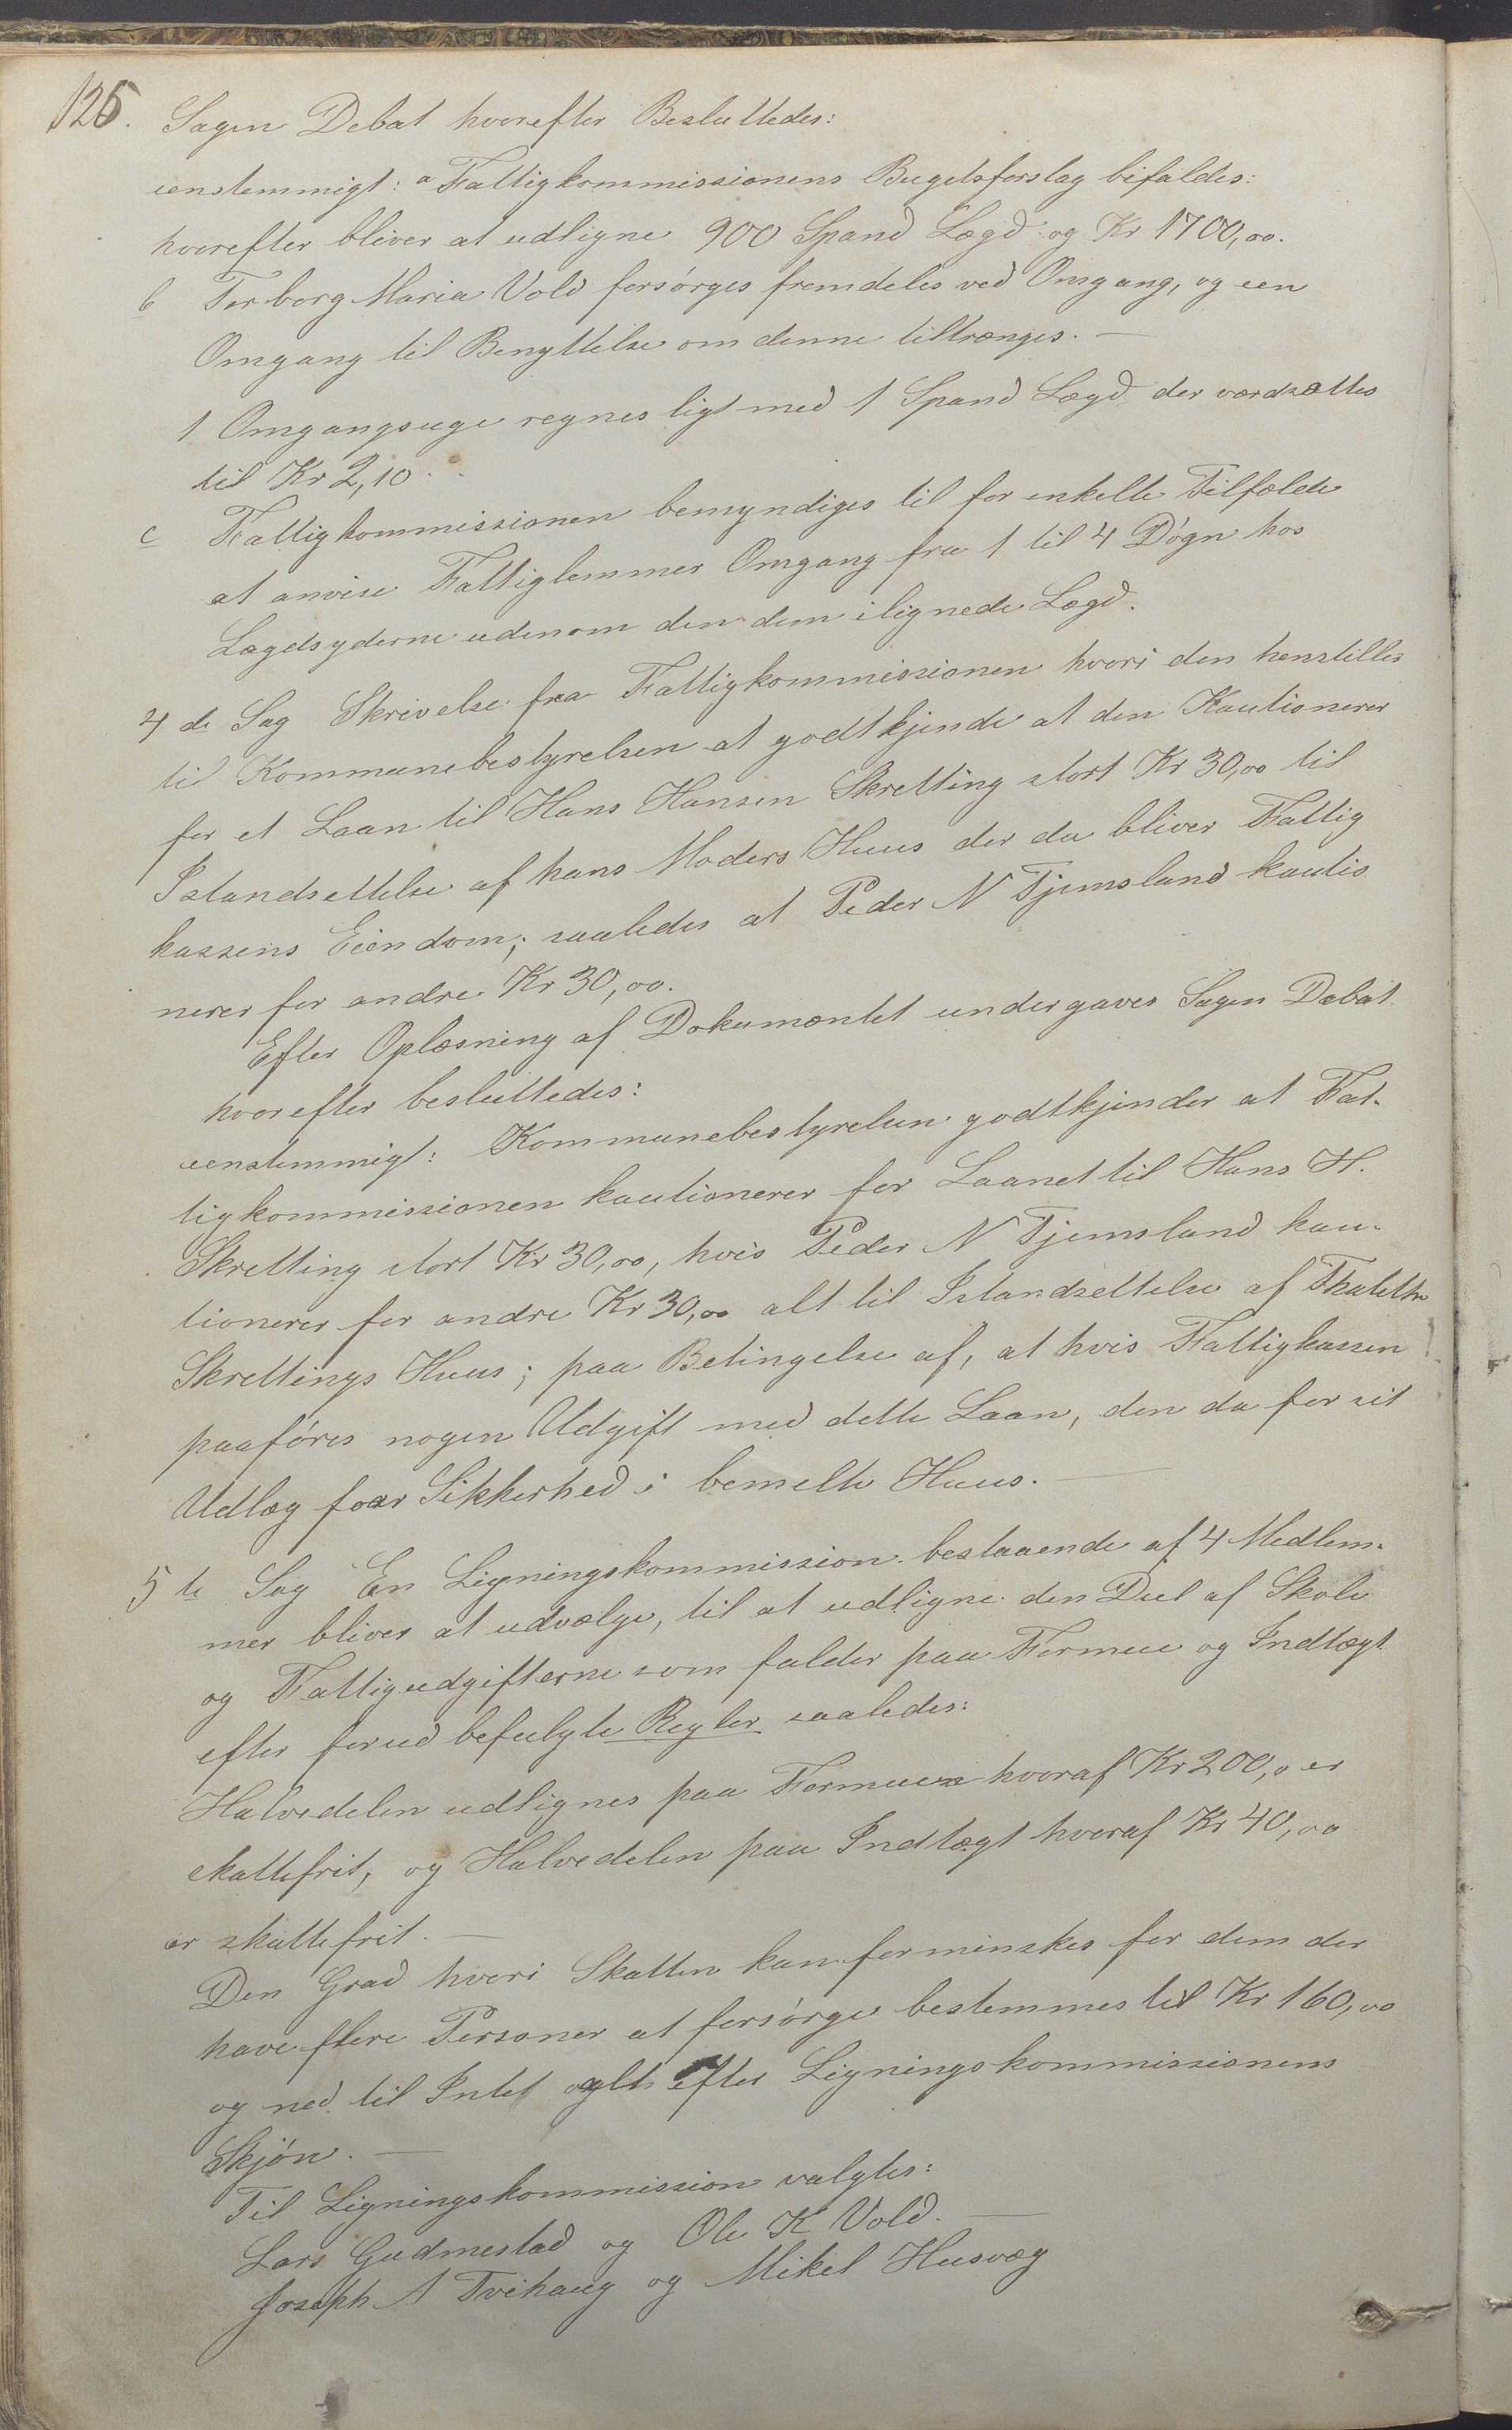 126. Sagen Debat hvorefter Besluttedes:
eenstemmigt: a Fattigkommissionens Bugetsforslag bifaldes:
hvorefter bliver at udligne 900 Spand Lægd og Kr 1700,00.
b Torborg Maria Vold forsørges fremdeles ved Omgang, og een
Omgang til Benyttelse om denne tiltrænges. —
1 Omgangsuge regnes ligt med 1 Spand Lægd der værdsættes
til Kr 2,10.
c Fattigkommissionen bemyndiges til for enkelte Tilfælde
at anvise Fattiglemmer Omgang fra 1 til 4 Døgn hos
Lægdsyderne udenom den dem ilignede Lægd.
4 de Sag Skrivelse fra Fattigkommissionen hvori den henstilles
til Kommunebestyrelsen at godtkjende at den Kautionerer
for et Laan til Hans Hansen Skretting stort Kr 30,00 til
Istandsettelse af hans Moders Huus der da bliver Fattig
kassens Eiendom; saaledes at Peder N Tjemsland kautio
nerer for andre Kr 30,00.
Efter Oplæsning af Dokumentet undergaves Sagen Debat
hvorefter besluttedes:
eenstemmigt: Kommunebestyrelsen godtkjender at Fat-
tigkommissionen kautionerer for Laanet til Hans H.
Skretting stort Kr 30,00, hvis Peder N Tjemsland kau-
tionerer for andre Kr 30,00 alt til Istandsettelse af
Skrettings Huus; paa Betingelse af, at hvis Fattigkassen
paaføres nogen Udgift med dette Laan, den da for sit
Udlæg faar Sikkerhed i bemelte Huus. —
5 te Sag En Ligningskommission bestaaende af 4 Medlem-
mer bliver at udvælge, til at udligne den Deel af Skole
og Fattigudgifterne som falder paa Formue og Indtægt
efter forud befulgte Regler saaledes:
Halvedelen udlignes paa Formue hvoraf Kr 200,0 er
skattefrit, og Halvedelen paa Indtægt hvoraf Kr 40,00
er skattefrit. —
Den Grad hvori Skatten kan forminskes for dem der
have flere Personer at forsørge bestemmes til Kr 160,00
og ned til Intet alt efter Ligningskommissionens
Skjøn. —
Til Ligningskommission valgtes:
Lars Gudmestad og Ole K Vold. —
Joseph A Tvihaug og Mikel Husvæg